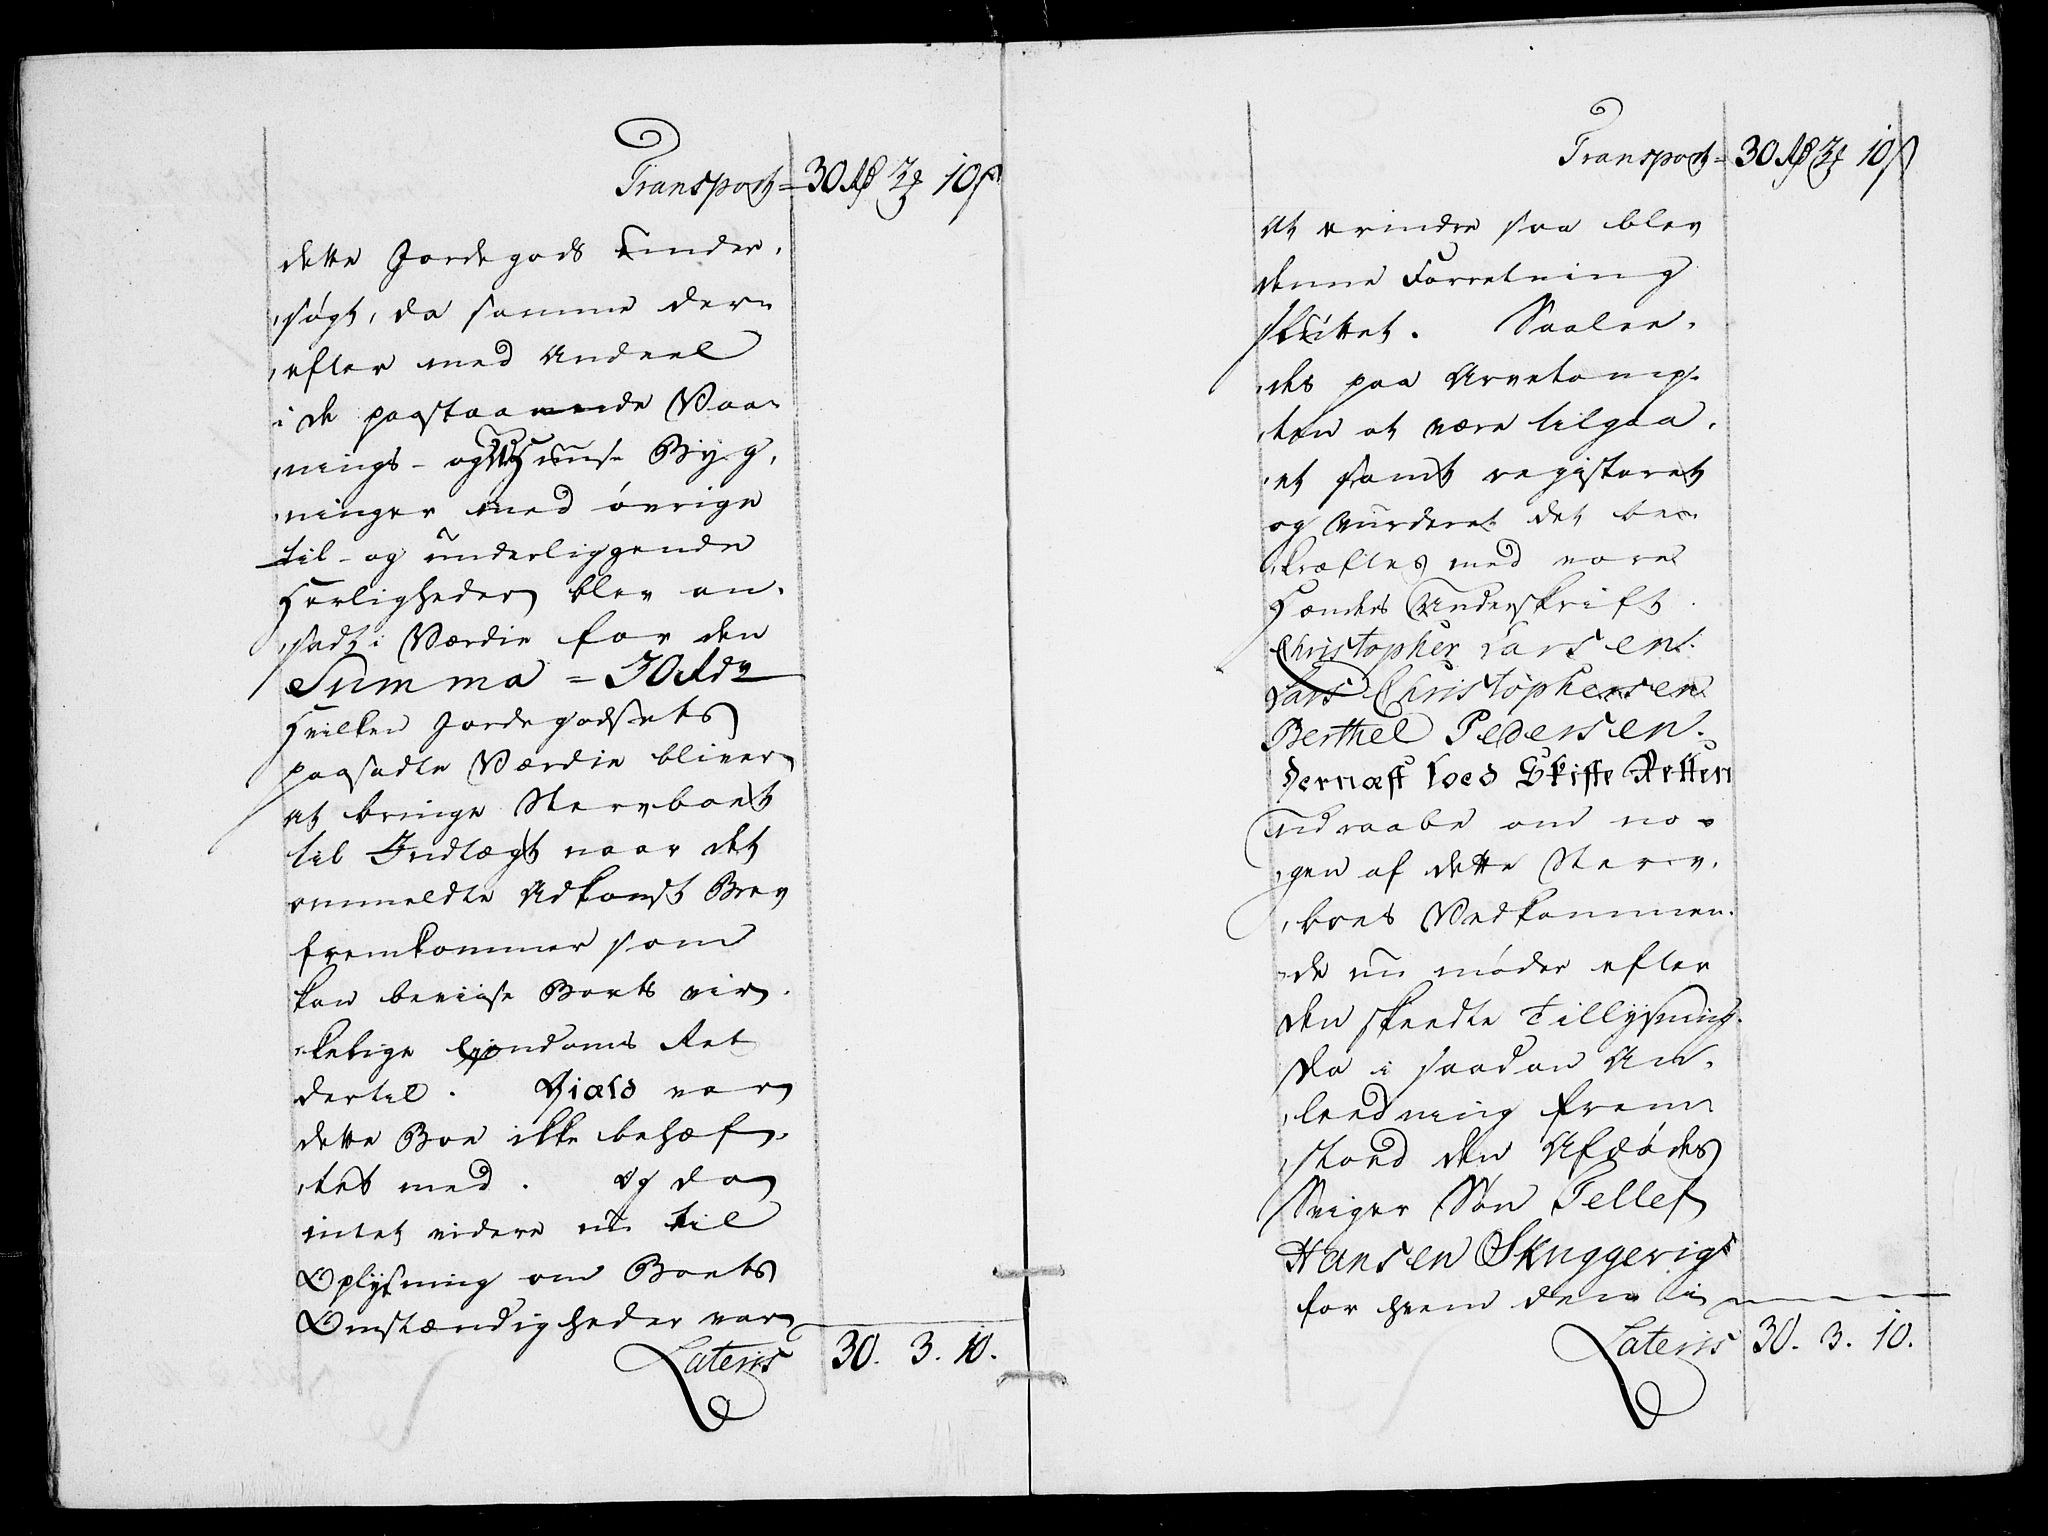 Transport = 30 Rd 3 ₰ 10 ß
dette Jordegods under,
,søgt, da samme der=
,efter med Andeel
i de paastaaende Vaa=
,nings- og Huuse Byg,
,ninger med øvrige
til- og underliggende
Herligheder blev an,
,sadt i Værdie for den
Summa = 30 Rdr
Hvilken Jordegodsets
paasadte Værdie bliver
at bringe Stervboet
til Indtægt naar det
ommeldte Adkomst Brev
fremkommer som
kan beviise Boets vir,
,kelige Ejendoms Ret
dertil. Giæld var
dette Boe ikke behæf,
,tet med. Og da
intet videre nu til
Oplysning om Boets
Omstændigheder var
Lateris 30. 3. 10.
Transport = 30 Rd 3 ₰ 10 ß
at erindre saa blev
denne Forretning
sluttet. Saalee,
,des paa Arvetomp,
,ten at være tilgaa,
,et samt registeret
og vurderet det be=
,kræftes med vores
Hænders Underskrift.
Christopher Larsen.
Lars Christophersen.
Berthel Pedersen.
Dernæst loed Skifte Retten
Udraabe om no=
,gen af dette Sterv,
,boes Vedkommen,
,de nu møder efter
den skeedte Tillysning.
Da i saadan An,
,leedning frem=
,stoed den Afdødes
Sviger Søn Tellef
Hansen Skuggevigs
for hvem den i
Lateris 30. 3. 10.